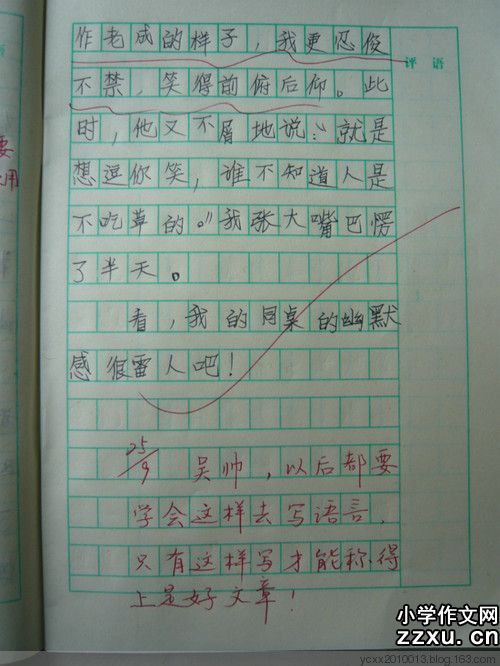 作老成的样子，我更忍俊
评语
不禁，笑得前俯后仰。此
时，他又不屑地说：“就是
想逗你笑，谁不知道人是
不吃草的。”我张大嘴巴愣
了半天。
看，我的同桌的幽默
感很雷人吧！
25/9 吴帅，以后都要
学会这样去写语言，
只有这样写才能称得
上是好文章！
要
用
小学作文网
zzxu.cn
ycxx2010013.blog.163.com